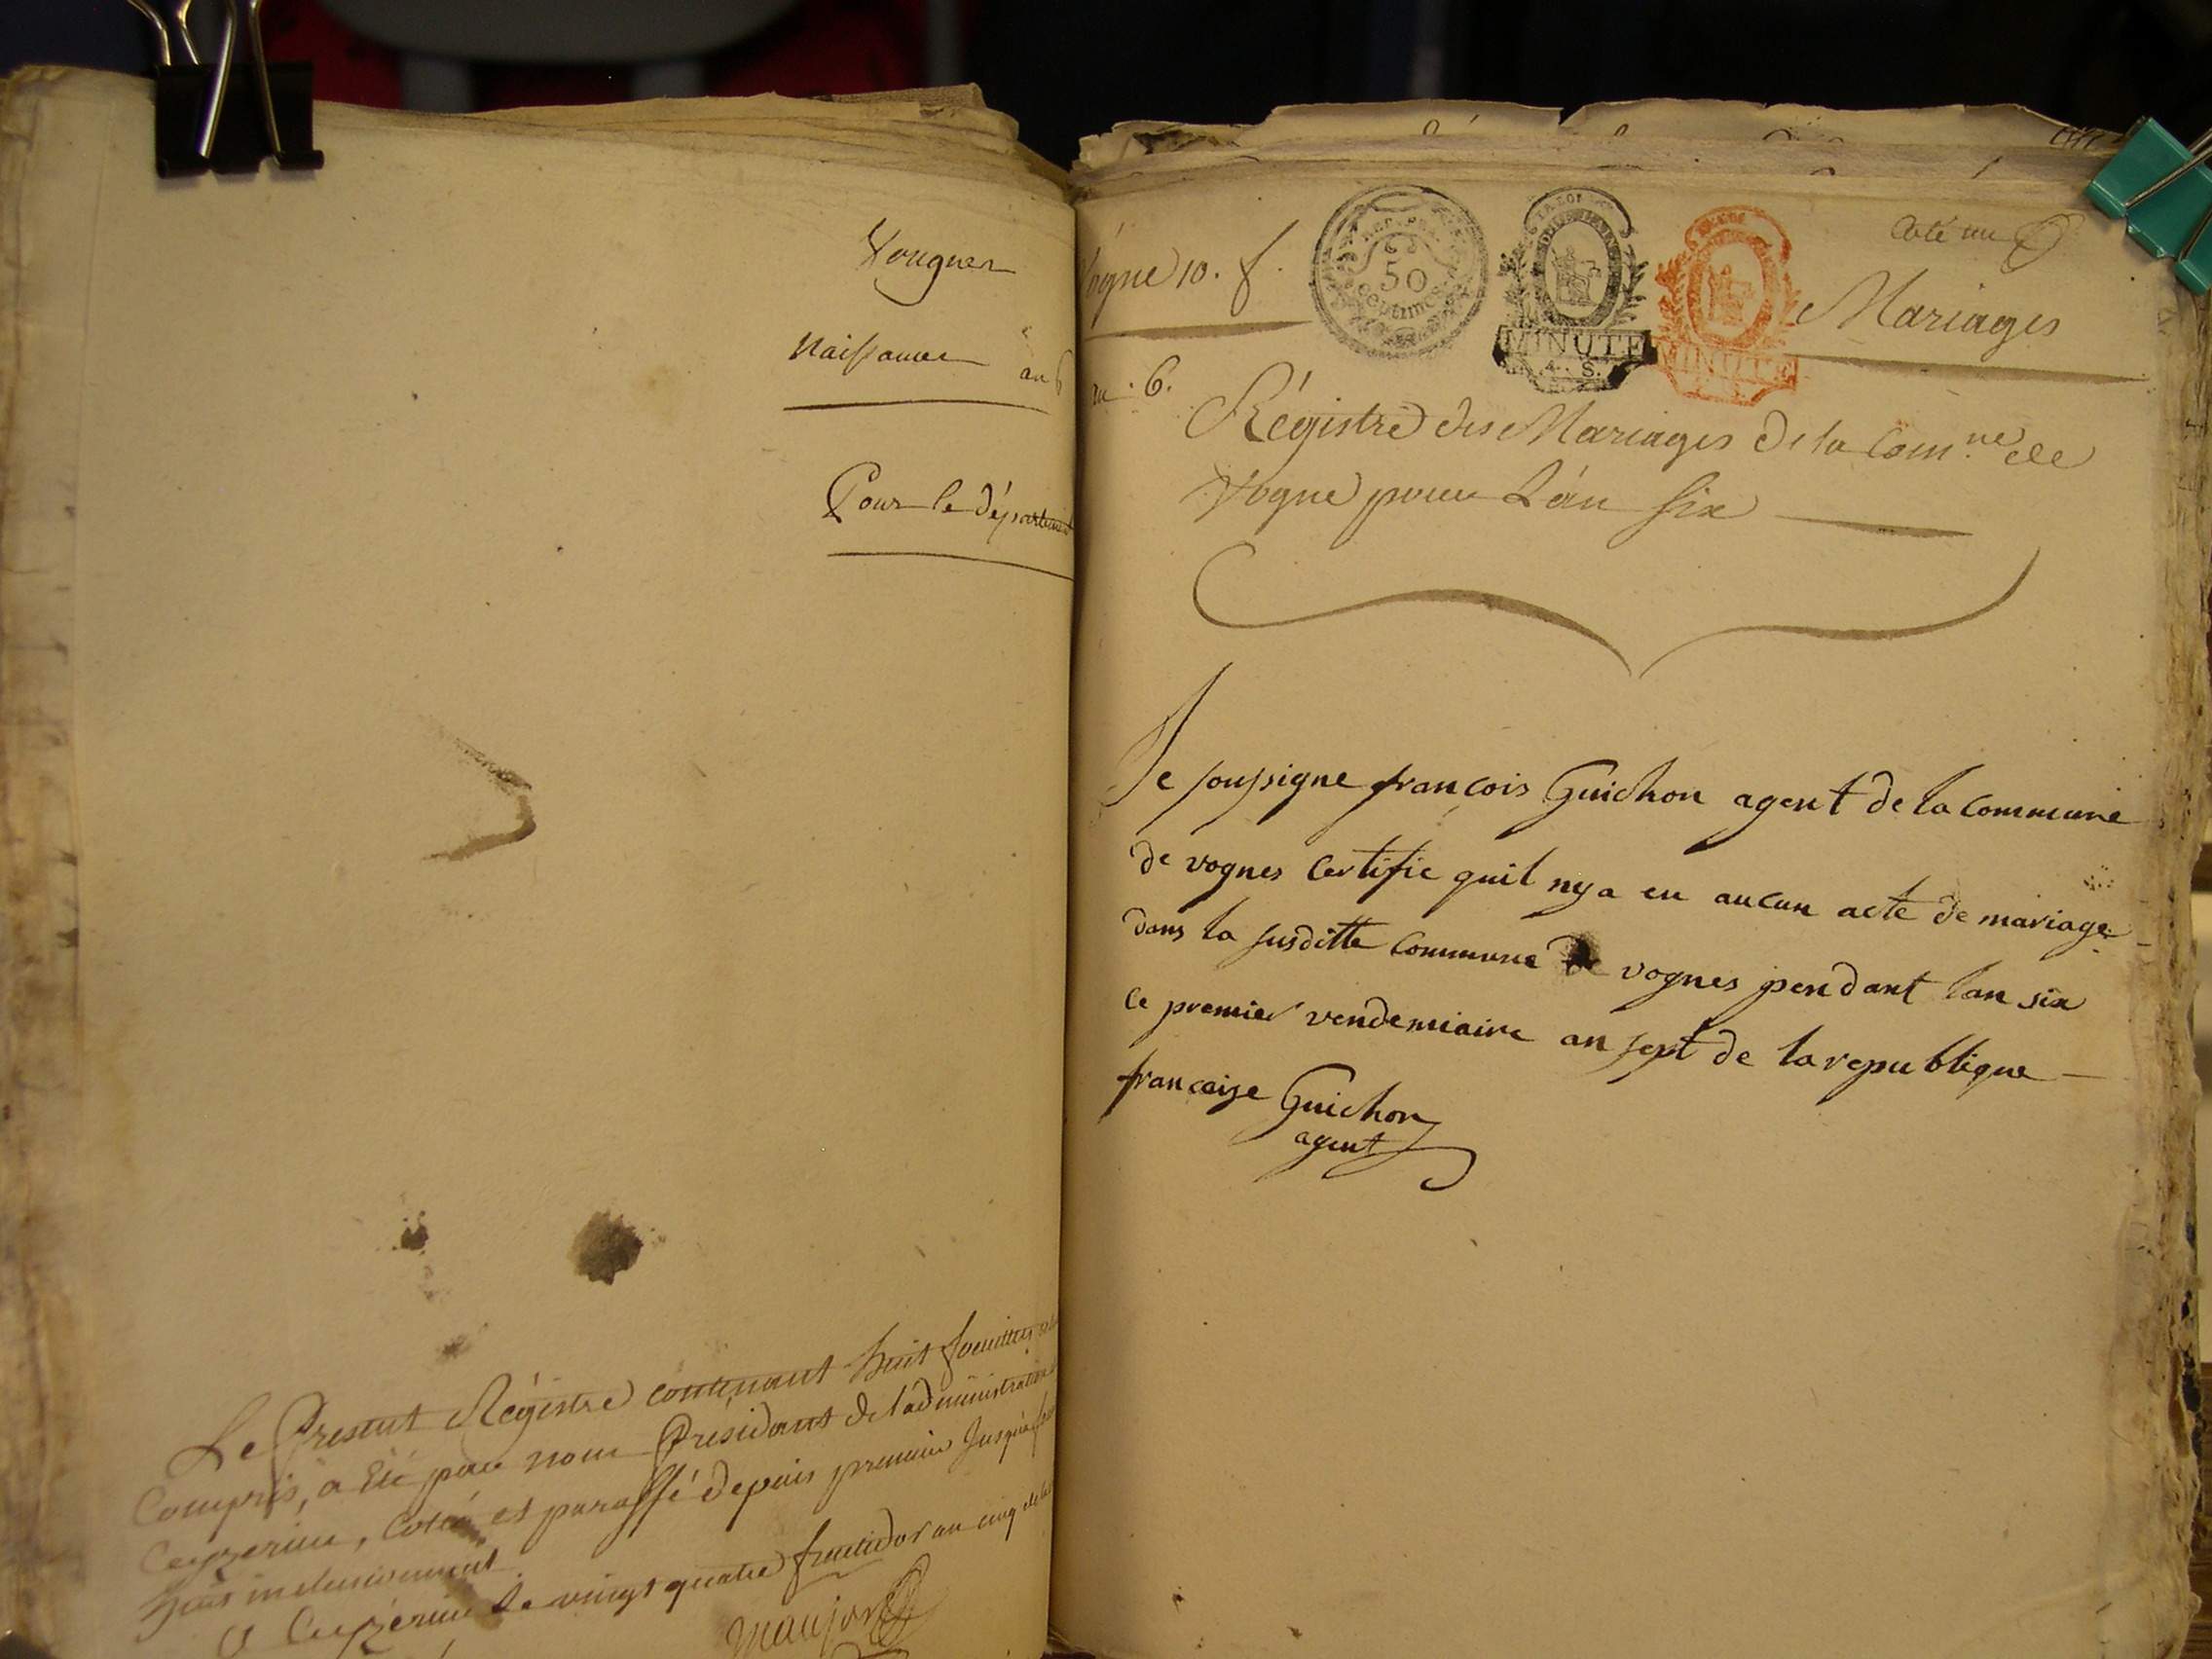 Vougnes
Naissances an 6
Pour le département
Le Present Régistre contenant huit feuillets
Compris, a été par nous Présidant de l'administration
Ceyzerieu, Coté et paraffé depuis premier Jusqu'a
huis inclusivement
a Ceyzerieu le vingt quatre fructidor an cinq
Vogne 10. f.
50
centimes
MINUTE
A. S.
MINUTE
Coté un
Mariages
an. 6.
Régistre des Mariages de la Com.ne de
Vogne pour L'an Six
Je soussigne françois Guichon agent de la commune
de vognes certifie quil ny a eu aucun acte de mariage
dans la susditte commune de vognes pendant lan six
ce premier vendemiaire an sept de la republique
francaise Guichon
agent